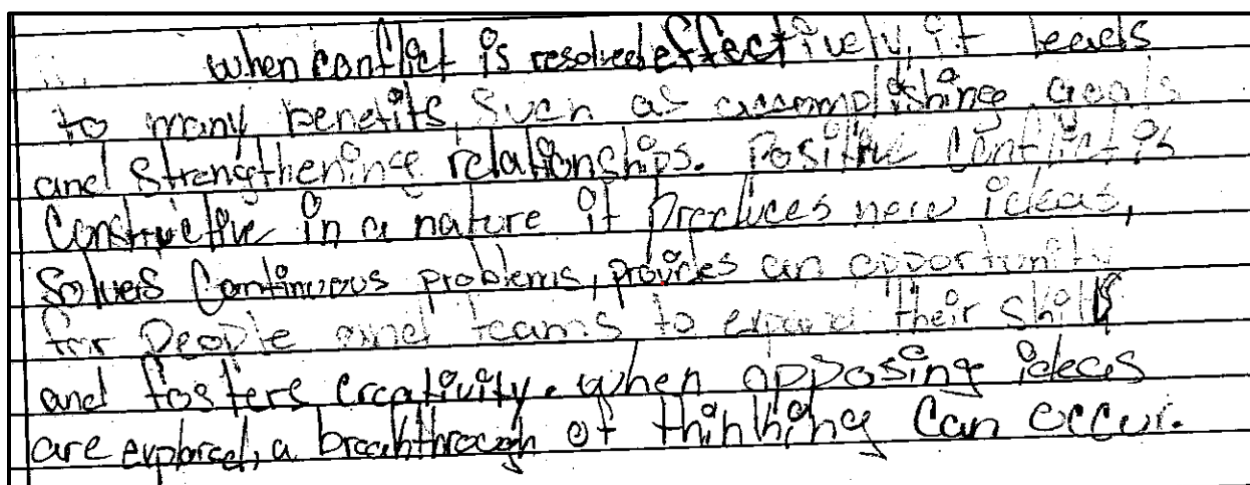 when conflict is resolved effectively, it leads
to many benefits, such as accomplishing goals
and strengthening relationships. Positive Conflict is
Constructive in a nature it Produces new ideas,
Solves Continuous problems, provides an opportunity
for People and teams to expand their skills
and fosters creativity. when opposing ideas
are explored, a breakthrough of thinking Can occur.